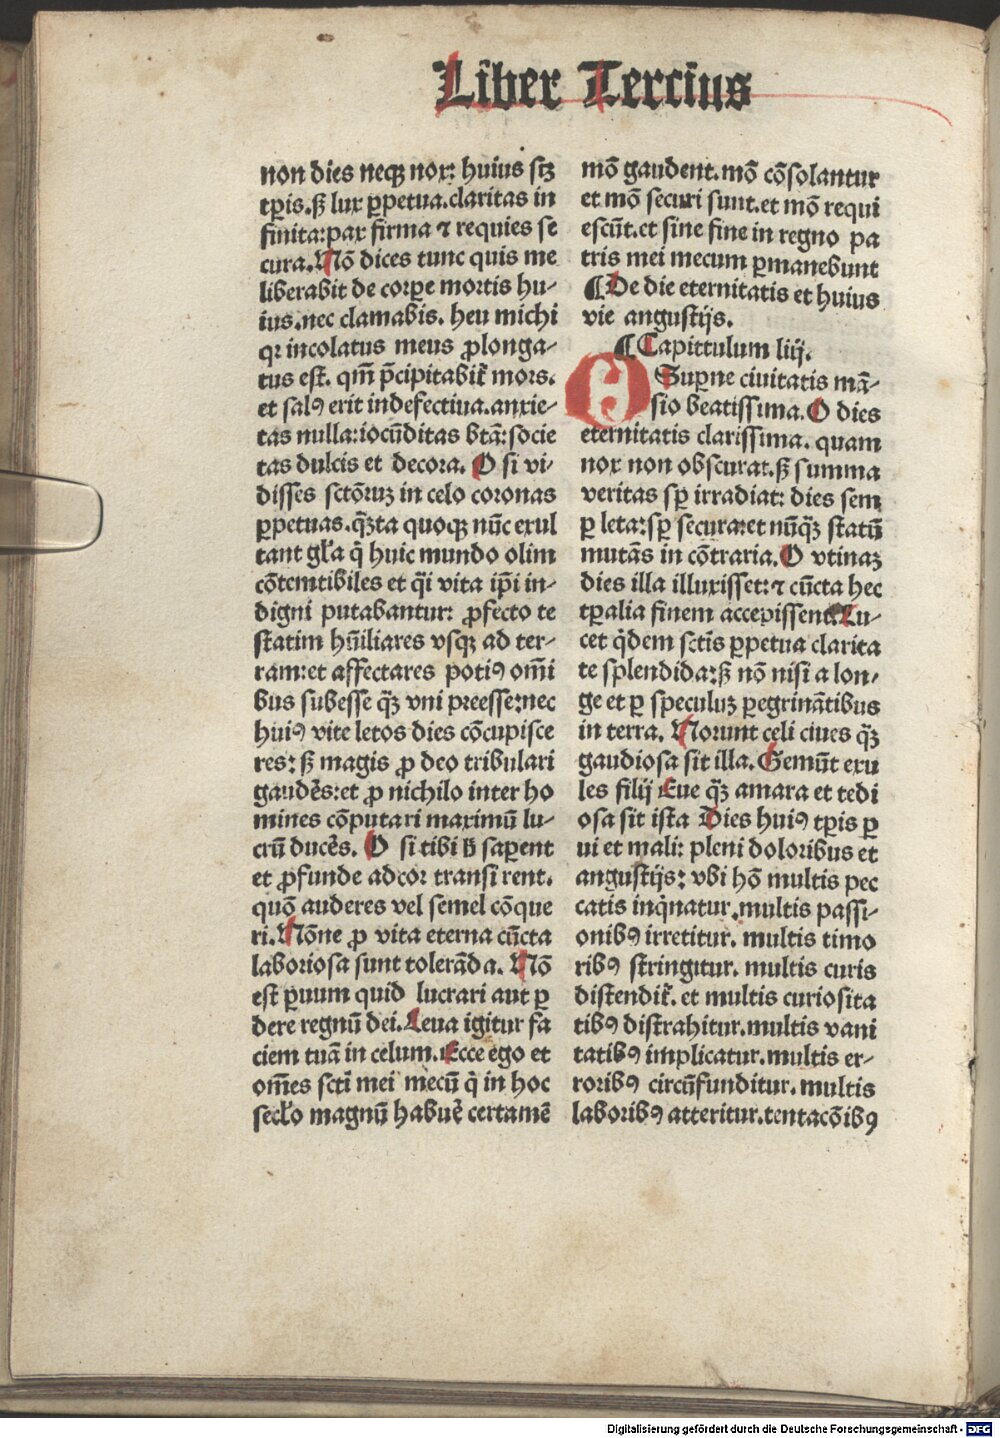 Liber Tercius
non dies neqꝫ nox: huius ſꝫ
tꝑis. ſꝫ lux ꝑpetua. claritas in
finita: pax firma ⁊ requies ſe
cura. Nō dices tunc quis me
liberabit de corpe mortis hu⸗
ius. nec clamabis. heu michi
qꝛ incolatus meus ꝓlonga⸗
tus eſt. qm̄ p̄cipitabit̄ mors.
et salꝰ erit indefectiua. anxie⸗
tas nulla: iocūditas btā: ſocie
tas dulcis et decora. O ſi vi⸗
diſſes ſctōruꝫ in celo coronas
ꝑpetuas. q̄ꝫta quoqꝫ nūc exul
tant gl̄a q̄ huic mundo olim
cōtemtibiles et q̄ſi vita ip̄i in⸗
digni putabantur: ꝓfecto te
ſtatim hūiliares vſqꝫ ad ter⸗
ram: et affectares potiꝰ om̄i
bus ſubeſſe q̄ꝫ vni preeſſe: nec
huiꝰ vite letos dies cōcupiſce
res: ſꝫ magis ꝓ deo tribulari
gaudēs: et ꝓ nichilo inter ho
mines cōputari maximū lu⸗
crū ducēs. O ſi tibi h̄ ſaperent
et ꝓfunde ad cor tranſi rent.
quō auderes vel ſemel cōque
ri. Nōne ꝓ vita eterna cūcta
laborioſa ſunt tolerāda. Nō
eſt ꝑuum quid lucrari aut ꝑ
dere regnū dei. Leua igitur fa
ciem tuā in celum. Ecce ego et
om̄es ſcti mei mecū q̄ in hoc
ſecl̄o magnū habuēt certamē
mō gaudent. mō cōſolantur
et mō ſecuri ſunt. et mō requi
eſcūt. et ſine fine in regno pa
tris mei mecum ꝑmanebunt
¶ De die eternitatis et huius
vie anguſtijs.
¶ Capittulum liij.
O Supꝛne ciuitatis mā⸗
ſio beatiſſima. O dies
eternitatis clariſſima. quam
nox non obſcurat. ſꝫ ſumma
veritas ſꝑ irradiat: dies ſem
ꝑ leta: ſꝑ ſecura: et nūqꝫ ſtatū
mutās in cōtraria. O vtinaꝫ
dies illa illuxiſſet: ⁊ cūcta hec
tꝑalia finem accepiſſent. Lu⸗
cet q̇dem ſctis ꝑpetua clarita
te ſplendida: ſꝫ nō niſi a lon⸗
ge et ꝑ ſpeculuꝫ ꝑegrinātibus
in terra. Norunt celi ciues q̄ꝫ
gaudioſa ſit illa. Gemūt exu
les filij Eue q̄ꝫ amara et tedi
oſa ſit iſta Dies huiꝰ tꝑis ꝑ
ui et mali: pleni doloribus et
anguſtijs: vbi hō multis pec
catis inq̇natur. multis paſſi⸗
onibꝰ irretitur. multis timo
ribꝰ ſtringitur. multis curis
diſtendit̄. et multis curioſita
tibꝰ diſtrahitur. multis vani
tatibꝰ implicatur. multis er⸗
roribꝰ circūfunditur. multis
laboribꝰ atteritur. tentacōibꝰ
Digitalisierung gefördert durch die Deutsche Forschungsgemeinschaft - DFG